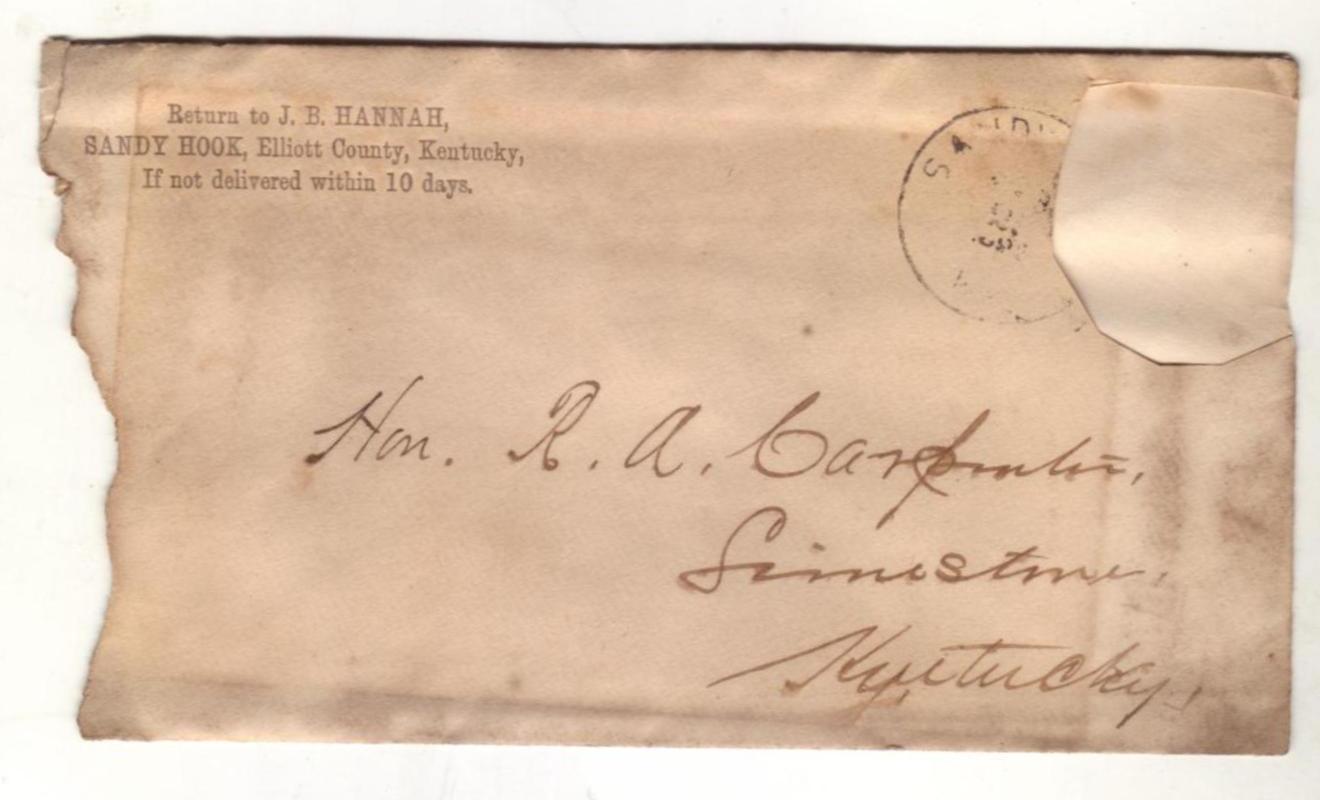 Return to J. B. HANNAH,
SANDY HOOK, Elliott County, Kentucky,
If not delivered within 10 days.
SANDY
Hon. R. A. Carpenter,
Limestone,
Kentucky,